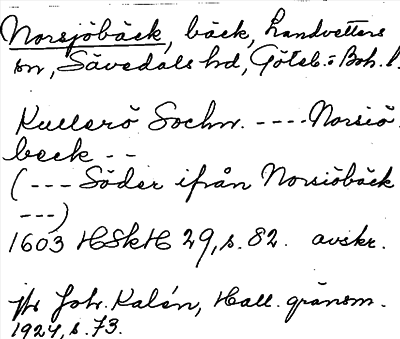 Norsjöbäck, bäck, Landvetters
sn, Sävedals hd, Göteb. o Boh. l.
Kullerö Sochn. ---- Norsiö
beck --
(--- Söder ifrån Norsiöbäck
---)
1603 HSkH 29, s. 82. avskr.
Joh. Kalén, Hall. gränsm.
1924, s. 73.